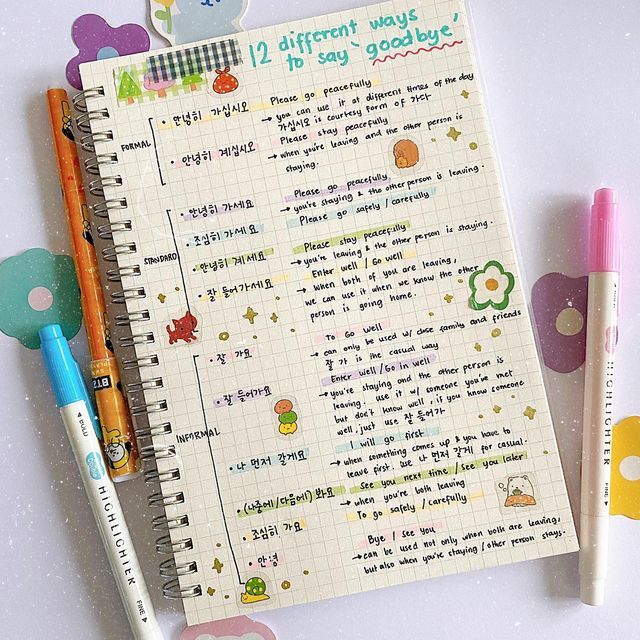 12 different ways
to say 'goodbye'
FORMAL
• 안녕히 가십시오
Please go peacefully
→ you can use it at different times of the day
가십시오 is courtesy form of 가다
• 안녕히 계십시오
Please stay peacefully
→ when you're leaving and the other person is
staying.
STANDARD
• 안녕히 가세요
Please go peacefully
→ you're staying & the other person is leaving.
• 조심히 가세요
Please go safely / carefully
• 안녕히 계세요
Please stay peacefully
→ you're leaving & the other person is staying.
• 잘 들어가세요
Enter well / Go well
→ when both of you are leaving,
we can use it when we know the other
person is going home.
INFORMAL
• 잘 가요
To Go well
→ can only be used w/ close family and friends
잘 가 is the casual way
• 잘 들어가요
Enter well / Go in well
→ you're staying and the other person is
leaving. use it w/ someone you've met
but don't know well, if you know someone
well, just use 잘 들어가
• 나 먼저 갈게요
I will go first
→ when something comes up & you have to
leave first. use 나 먼저 갈게 for casual.
• (나중에/다음에) 봐요
See you next time / See you later
→ when you're both leaving
• 조심히 가요
To go safely / carefully
• 안녕
Bye / See you
→ can be used not only when both are leaving,
but also when you're staying / other person stays.
BT21
HIGHLIGHTER
FINE
HIGHLIGHTER
FINE